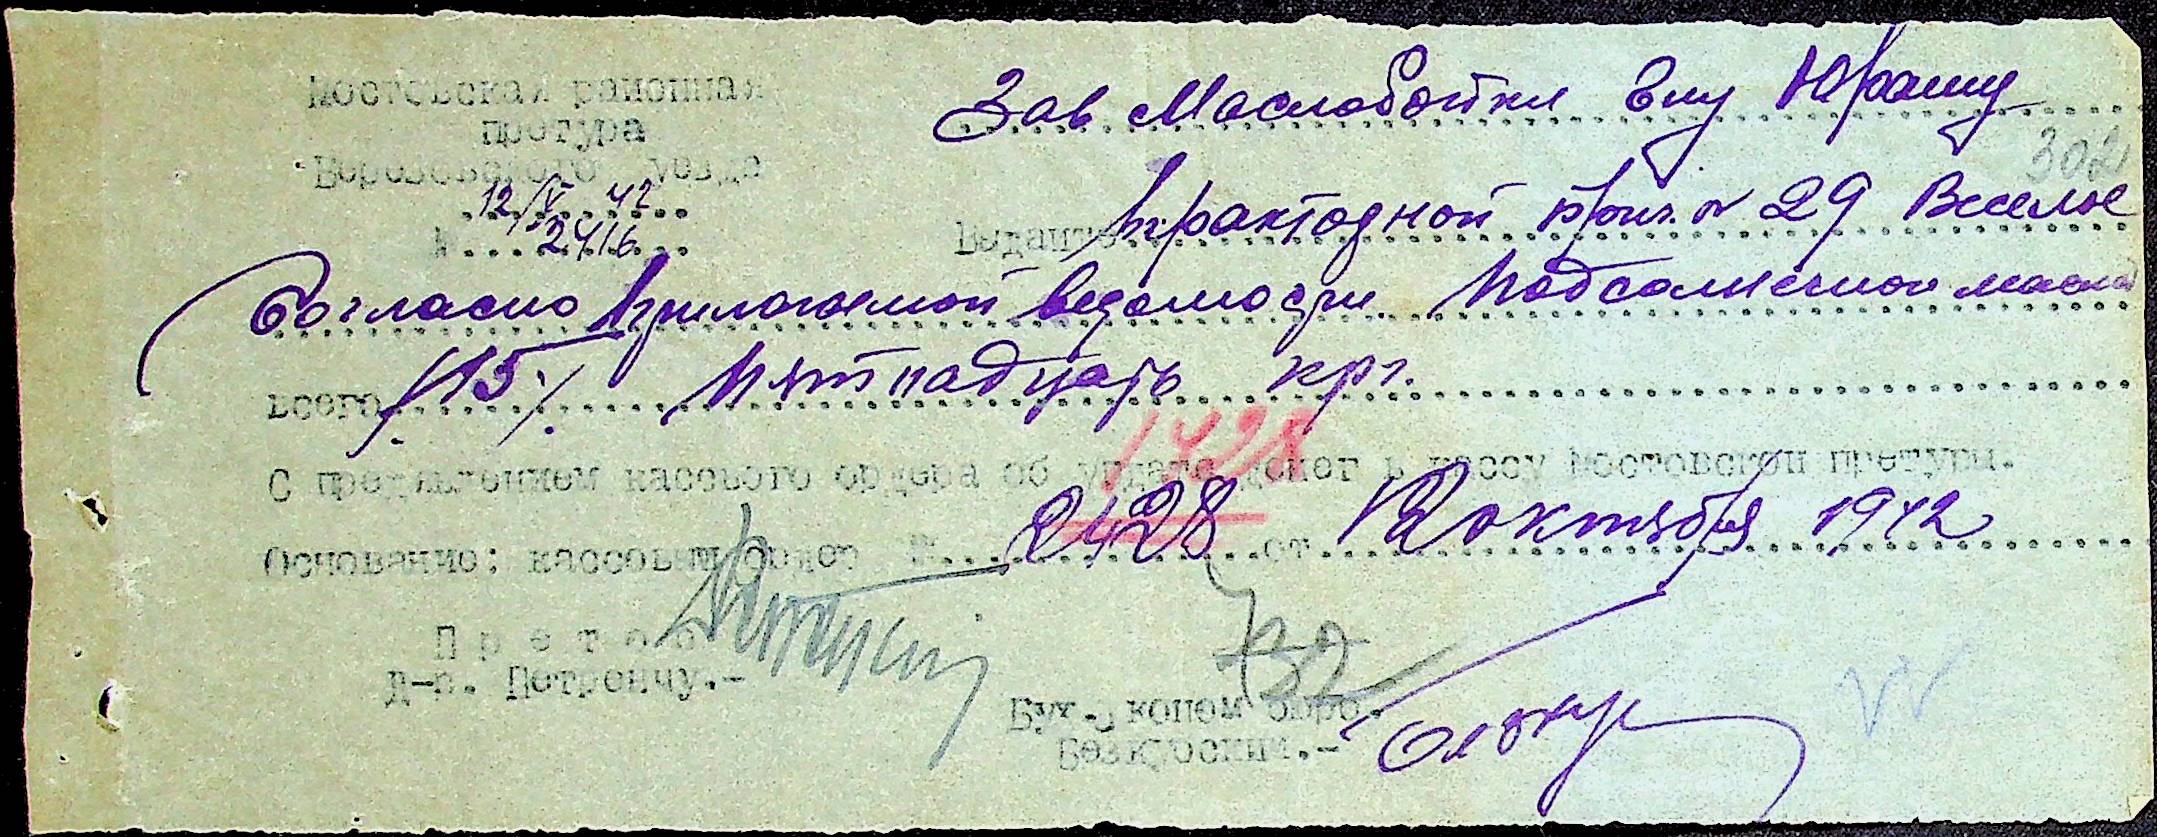 Мостовская районная
претура
Березовского уезда
12/X 42
№ 2416
Зав Маслобойки Елу Юрашу
302
Выдайте Тракторной бриг. № 29 Веселое
Согласно прилогаемой ведомости Подсолнечной масла
всего /15/ Пятнадцать кгр.
1428
С предъявлением кассового ордера об уплате денег в кассу Мостовской претуры.
Основание: кассовый ордер № 2428 от 12 октября 1942
Претор
Д-р. Петренчу.-
732
Бух. эконом бюро.
Безкурский.-